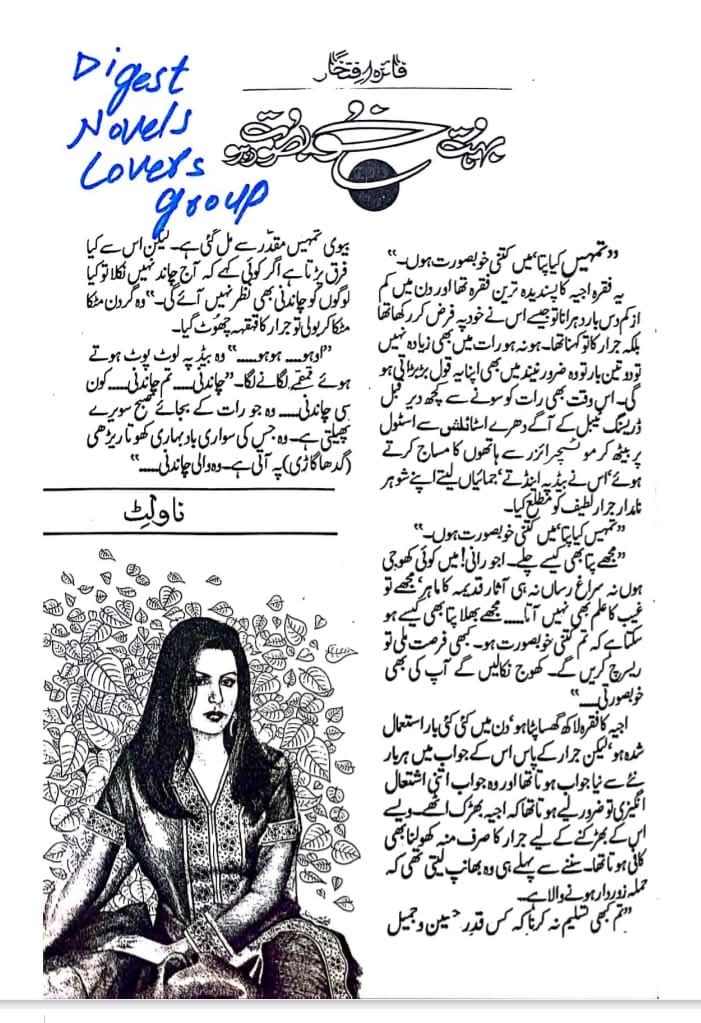 Digest
Novels
Lovers
group
فائزہ افتخار
بہت خوبصورت ہو
”تمہیں کیا پتا‘ میں کتنی خوبصورت ہوں۔“
یہ فقرہ اجیہ کا پسندیدہ ترین فقرہ تھا اور دن میں کم
از کم دس بار دہرانا تو جیسے اس نے خود پہ فرض کر رکھا تھا
بلکہ جرار کا تو کہنا تھا۔ ہو نہ ہو رات میں بھی زیادہ نہیں
تو دو تین بار تو وہ ضرور نیند میں بھی اپنا یہ قول بڑبڑاتی ہو
گی۔ اس وقت بھی رات کو سونے سے کچھ دیر قبل
ڈریسنگ ٹیبل کے آگے دھرے اسٹائلش سے اسٹول
پر بیٹھ کر موئسچرائزر سے ہاتھوں کا مساج کرتے
ہوئے‘ اس نے بیڈ پہ اینڈتے‘ جمائیاں لیتے اپنے شوہر
نامدار جرار لطیف کو مطلع کیا۔
”تمہیں کیا پتا‘ میں کتنی خوبصورت ہوں۔“
”مجھے پتا بھی کیسے چلے۔ اجو رانی! میں کوئی کھوجی
ہوں نہ سراغ رساں نہ ہی آثار قدیمہ کا ماہر‘ مجھے تو
غیب کا علم بھی نہیں آتا..... مجھے بھلا پتا بھی کیسے ہو
سکتا ہے کہ تم کتنی خوبصورت ہو۔ کبھی فرصت ملی تو
ریسرچ کریں گے۔ کھوج نکالیں گے آپ کی بھی
خوبصورتی.....“
اجیہ کا فقرہ لاکھ گھسا پٹا ہو‘ دن میں کئی کئی بار استعمال
شدہ ہو‘ لیکن جرار کے پاس اس کے جواب میں ہر بار
نئے سے نیا جواب ہوتا تھا اور وہ جواب اتنی اشتعال
انگیزی تو ضرور لیے ہوتا تھا کہ اجیہ بھڑک اٹھے۔ ویسے
اس کے بھڑکنے کے لیے جرار کا صرف منہ کھولنا بھی
کافی ہوتا تھا۔ سننے سے پہلے ہی وہ بھانپ لیتی تھی کہ
حملہ زوردار ہونے والا ہے۔
”تم کبھی تسلیم نہ کرنا کہ کس قدر حسین و جمیل
بیوی تمہیں مقدر سے مل گئی ہے۔ لیکن اس سے کیا
فرق پڑتا ہے اگر کوئی کہے کہ آج چاند نہیں نکلا تو کیا
لوگوں کو چاندنی بھی نظر نہیں آئے گی۔“ وہ گردن مٹکا
مٹکا کر بولی تو جرار کا قہقہہ چھوٹ گیا۔
”اوہو.... ہوہو.....“ وہ بیڈ پہ لوٹ پوٹ ہوتے
ہوئے قہقہے لگانے لگا۔ ”چاندنی..... تم چاندنی..... کون
سی چاندنی..... وہ جو رات کے بجائے صبح سویرے
پھیلتی ہے۔ وہ جس کی سواری باد بہاری کھوتا ریڑھی
(گدھا گاڑی) پہ آتی ہے۔ وہ والی چاندنی.....“
ناولٹ